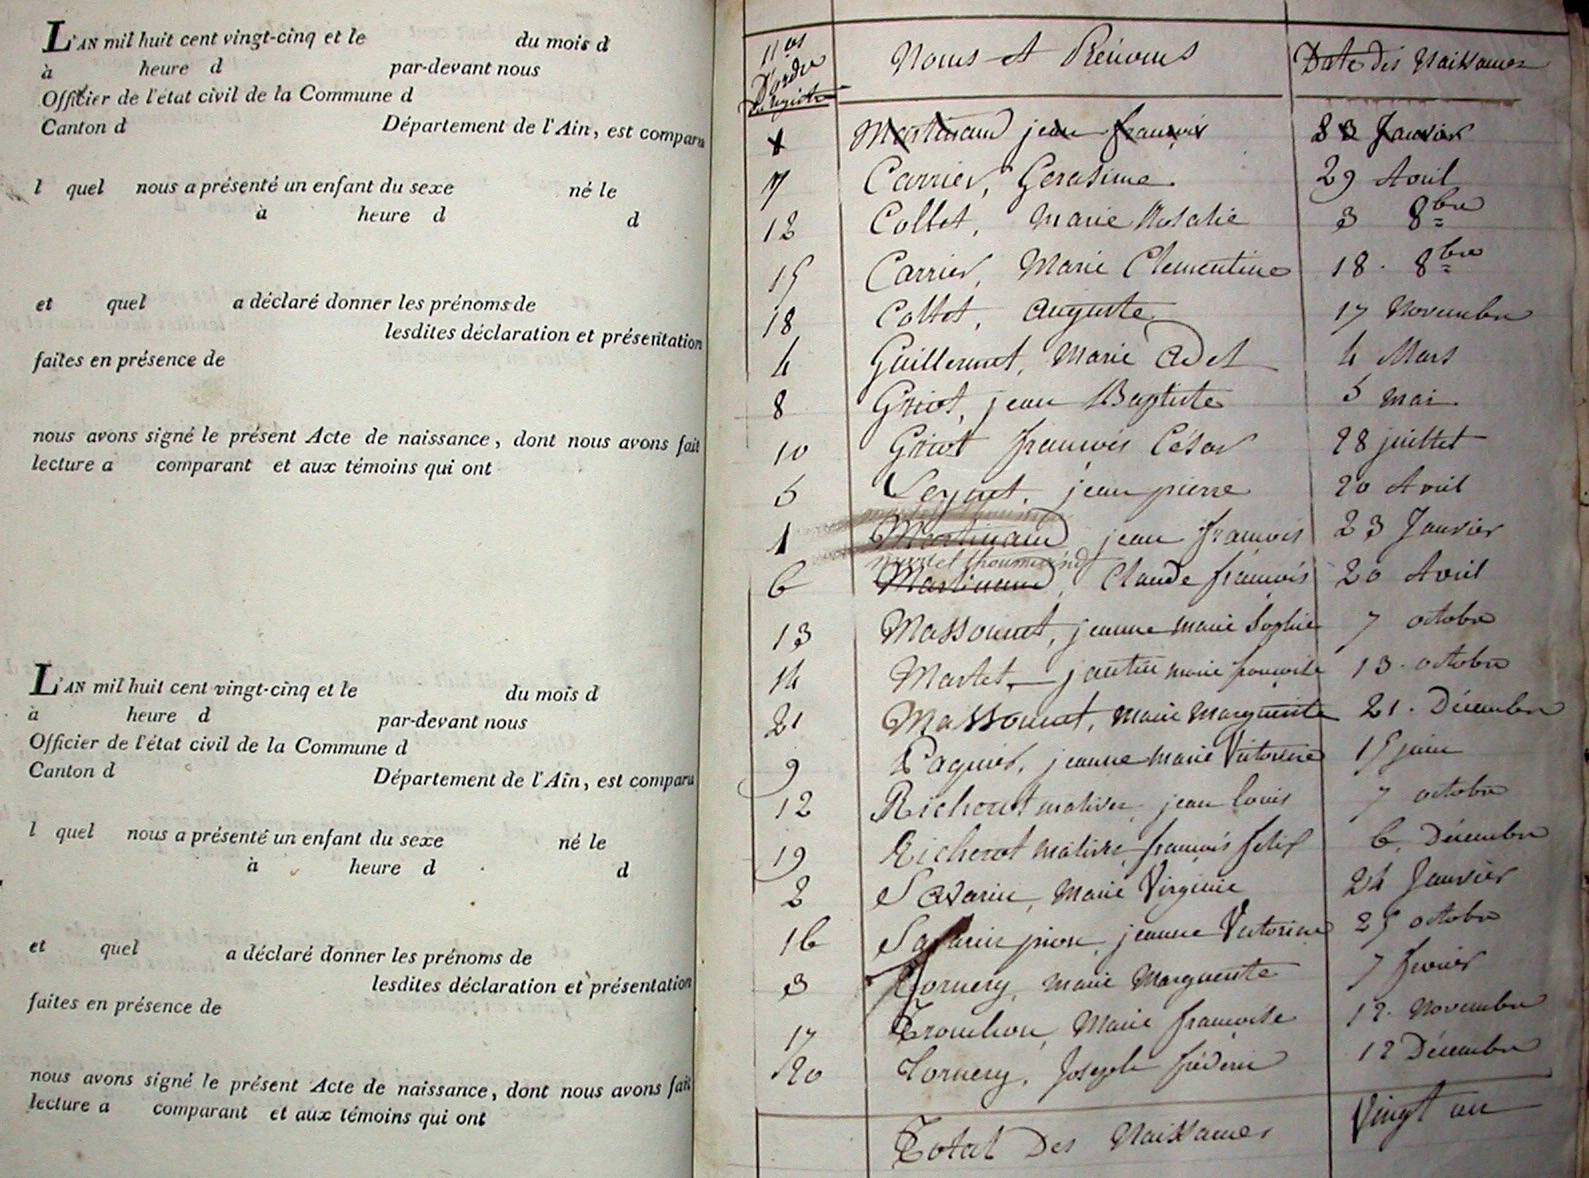 L'AN mil huit cent vingt-cinq et le du mois d
à heure d par-devant nous
Officier de l'état civil de la Commune d
Canton d Département de l'Ain, est comparu
l quel nous a présenté un enfant du sexe né le
à heure d d
et quel a déclaré donner les prénoms de
lesdites déclaration et présentation
faites en présence de
nous avons signé le présent Acte de naissance, dont nous avons fait
lecture a comparant et aux témoins qui ont
L'AN mil huit cent vingt-cinq et le du mois d
à heure d par-devant nous
Officier de l'état civil de la Commune d
Canton d Département de l'Ain, est comparu
l quel nous a présenté un enfant du sexe né le
à heure d d
et quel a déclaré donner les prénoms de
lesdites déclaration et présentation
faites en présence de
nous avons signé le présent Acte de naissance, dont nous avons fait
lecture a comparant et aux témoins qui ont
Nos d'ordre du Registre Noms et Prénoms Date des Naissances
1 Martinand jean françois 23 Janvier
7 Carrier, Gerasime 29 Avril
12 Collet, Marie Rosalie 3 8bre
15 Carrier, Marie Clementine 18. 8bre
18 Collet, auguste 17 Novembre
4 Guillermet, Marie Adel 4 Mars
8 Griot, jean Baptiste 5 mai
10 Griot françois César 28 juillet
5 Seynet, jean pierre 20 Avril
1 Martinand jean françois 23 Janvier
6 Martinand, Claude françois 20 Avril
13 Massonnet, jeanne marie Sophie 7 octobre
14 Martet, marie françoise 13. octobre
21 Massonnet, marie marguerite 21. Décembre
9 Paquier, jeanne marie Victorine 15 juin
12 Richerot mativet jean louis 7 octobre
19 Richerot mativet françois felix 6. Décembre
2 Savarin, Marie Virginie 24 Janvier
16 Savarin pion, jeanne Victorine 25 octobre
3 Tornery, marie Marguerite 7 fevrier
17 Trombon, Marie françoise 12. Novembre
20 Tornery, Joseph fréderic 12 Décembre
Total Des Naissances Vingt un